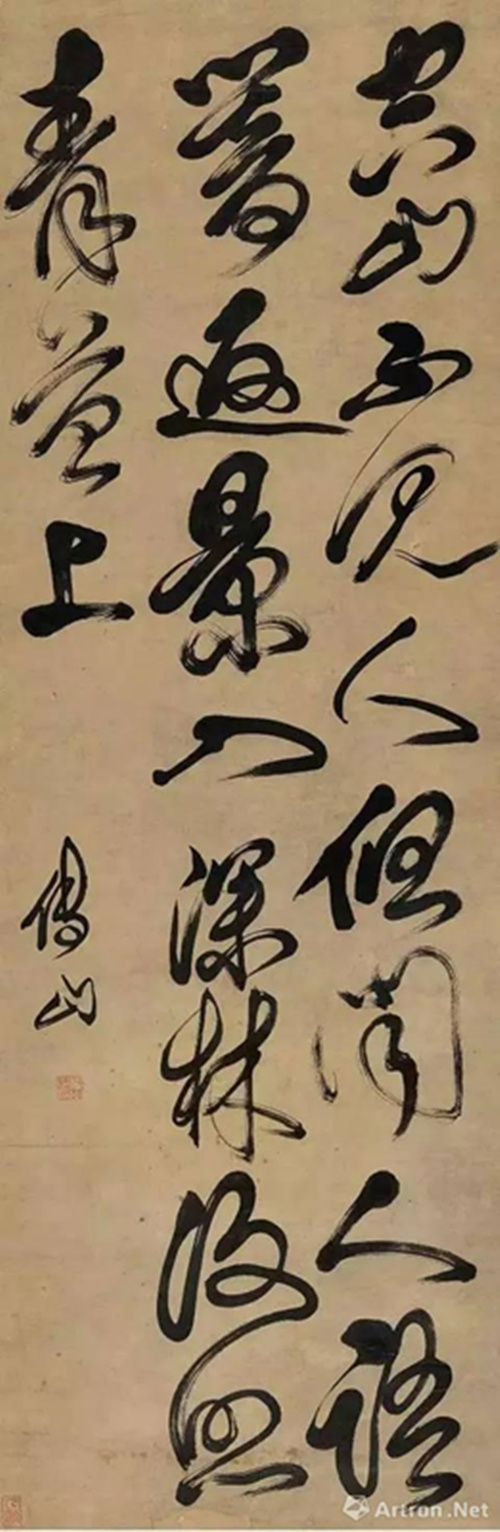 空山不見人但聞人語
響返景入深林復照
青苔上
傅山
Artron.Net